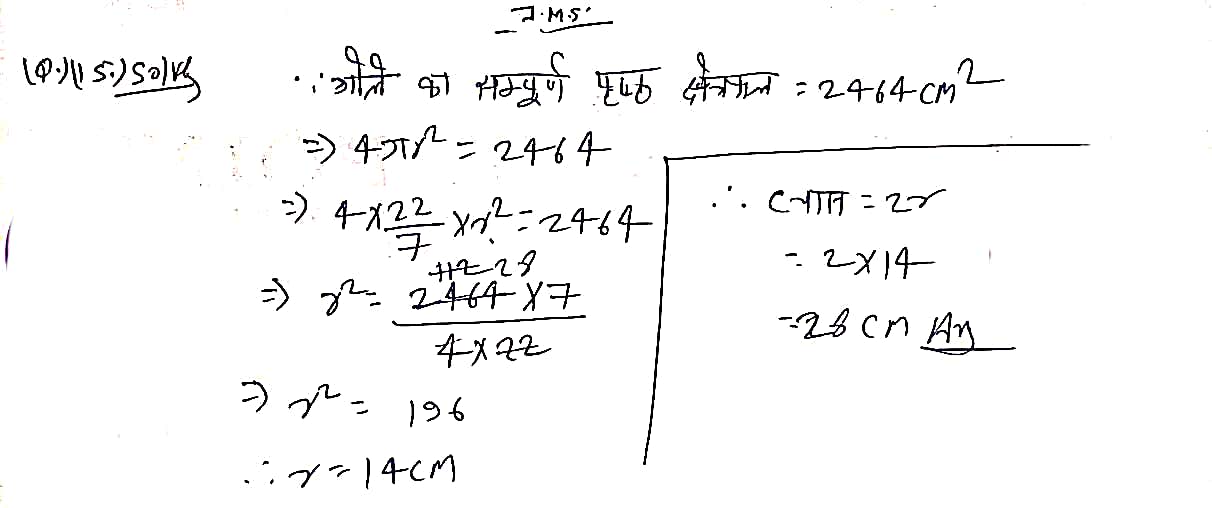 J.M.S.
(Q.)(15.) Solve
∵ गोले का सम्पूर्ण पृष्ठ क्षेत्रफल = 2464 cm²
⇒ 4πr² = 2464
⇒ 4 × 22/7 × r² = 2464
112 28
⇒ r² = 2464 × 7 / 4 × 22
⇒ r² = 196
∴ r = 14 CM
∴ व्यास = 2r
= 2 × 14
= 28 cm Ans